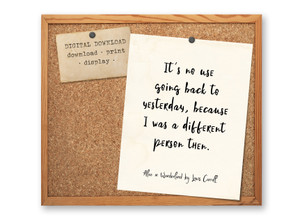 DIGITAL DOWNLOAD
download · print
· display ·
It's no use
going back to
yesterday, because
I was a different
person then.
Alice in Wonderland by Lewis Carroll